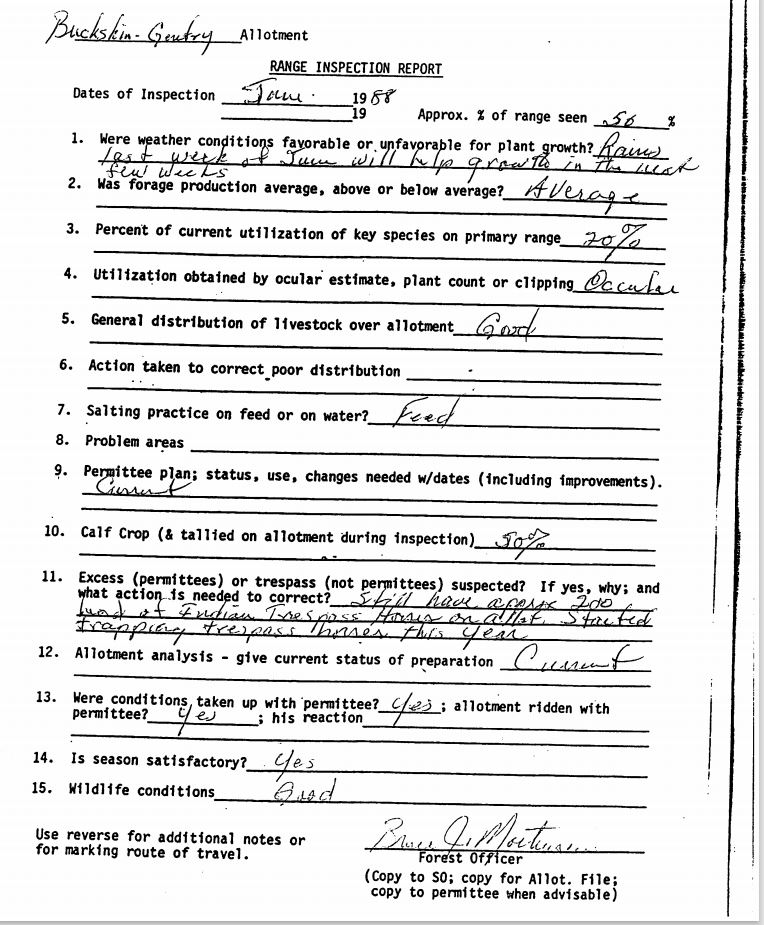 Buckskin-Gentry Allotment
RANGE INSPECTION REPORT
Dates of Inspection June 1988
19 Approx. % of range seen 50 %
1. Were weather conditions favorable or unfavorable for plant growth? Rains
last week of June will help growth in the next
few weeks
2. Was forage production average, above or below average? Average
3. Percent of current utilization of key species on primary range 20%
4. Utilization obtained by ocular estimate, plant count or clipping Occular
5. General distribution of livestock over allotment Good
6. Action taken to correct poor distribution
7. Salting practice on feed or on water? Feed
8. Problem areas
9. Permittee plan; status, use, changes needed w/dates (including improvements).
Current
10. Calf Crop (& tallied on allotment during inspection) 50%
11. Excess (permittees) or trespass (not permittees) suspected? If yes, why; and
what action is needed to correct? Still have aprox 200
head of Indian Trespass Horses on allot. Started
trapping trespass horses this year
12. Allotment analysis - give current status of preparation Current
13. Were conditions taken up with permittee? yes ; allotment ridden with
permittee? yes ; his reaction
14. Is season satisfactory? yes
15. Wildlife conditions Good
Use reverse for additional notes or
for marking route of travel.
Bruce J.
Forest Officer
(Copy to SO; copy for Allot. File;
copy to permittee when advisable)